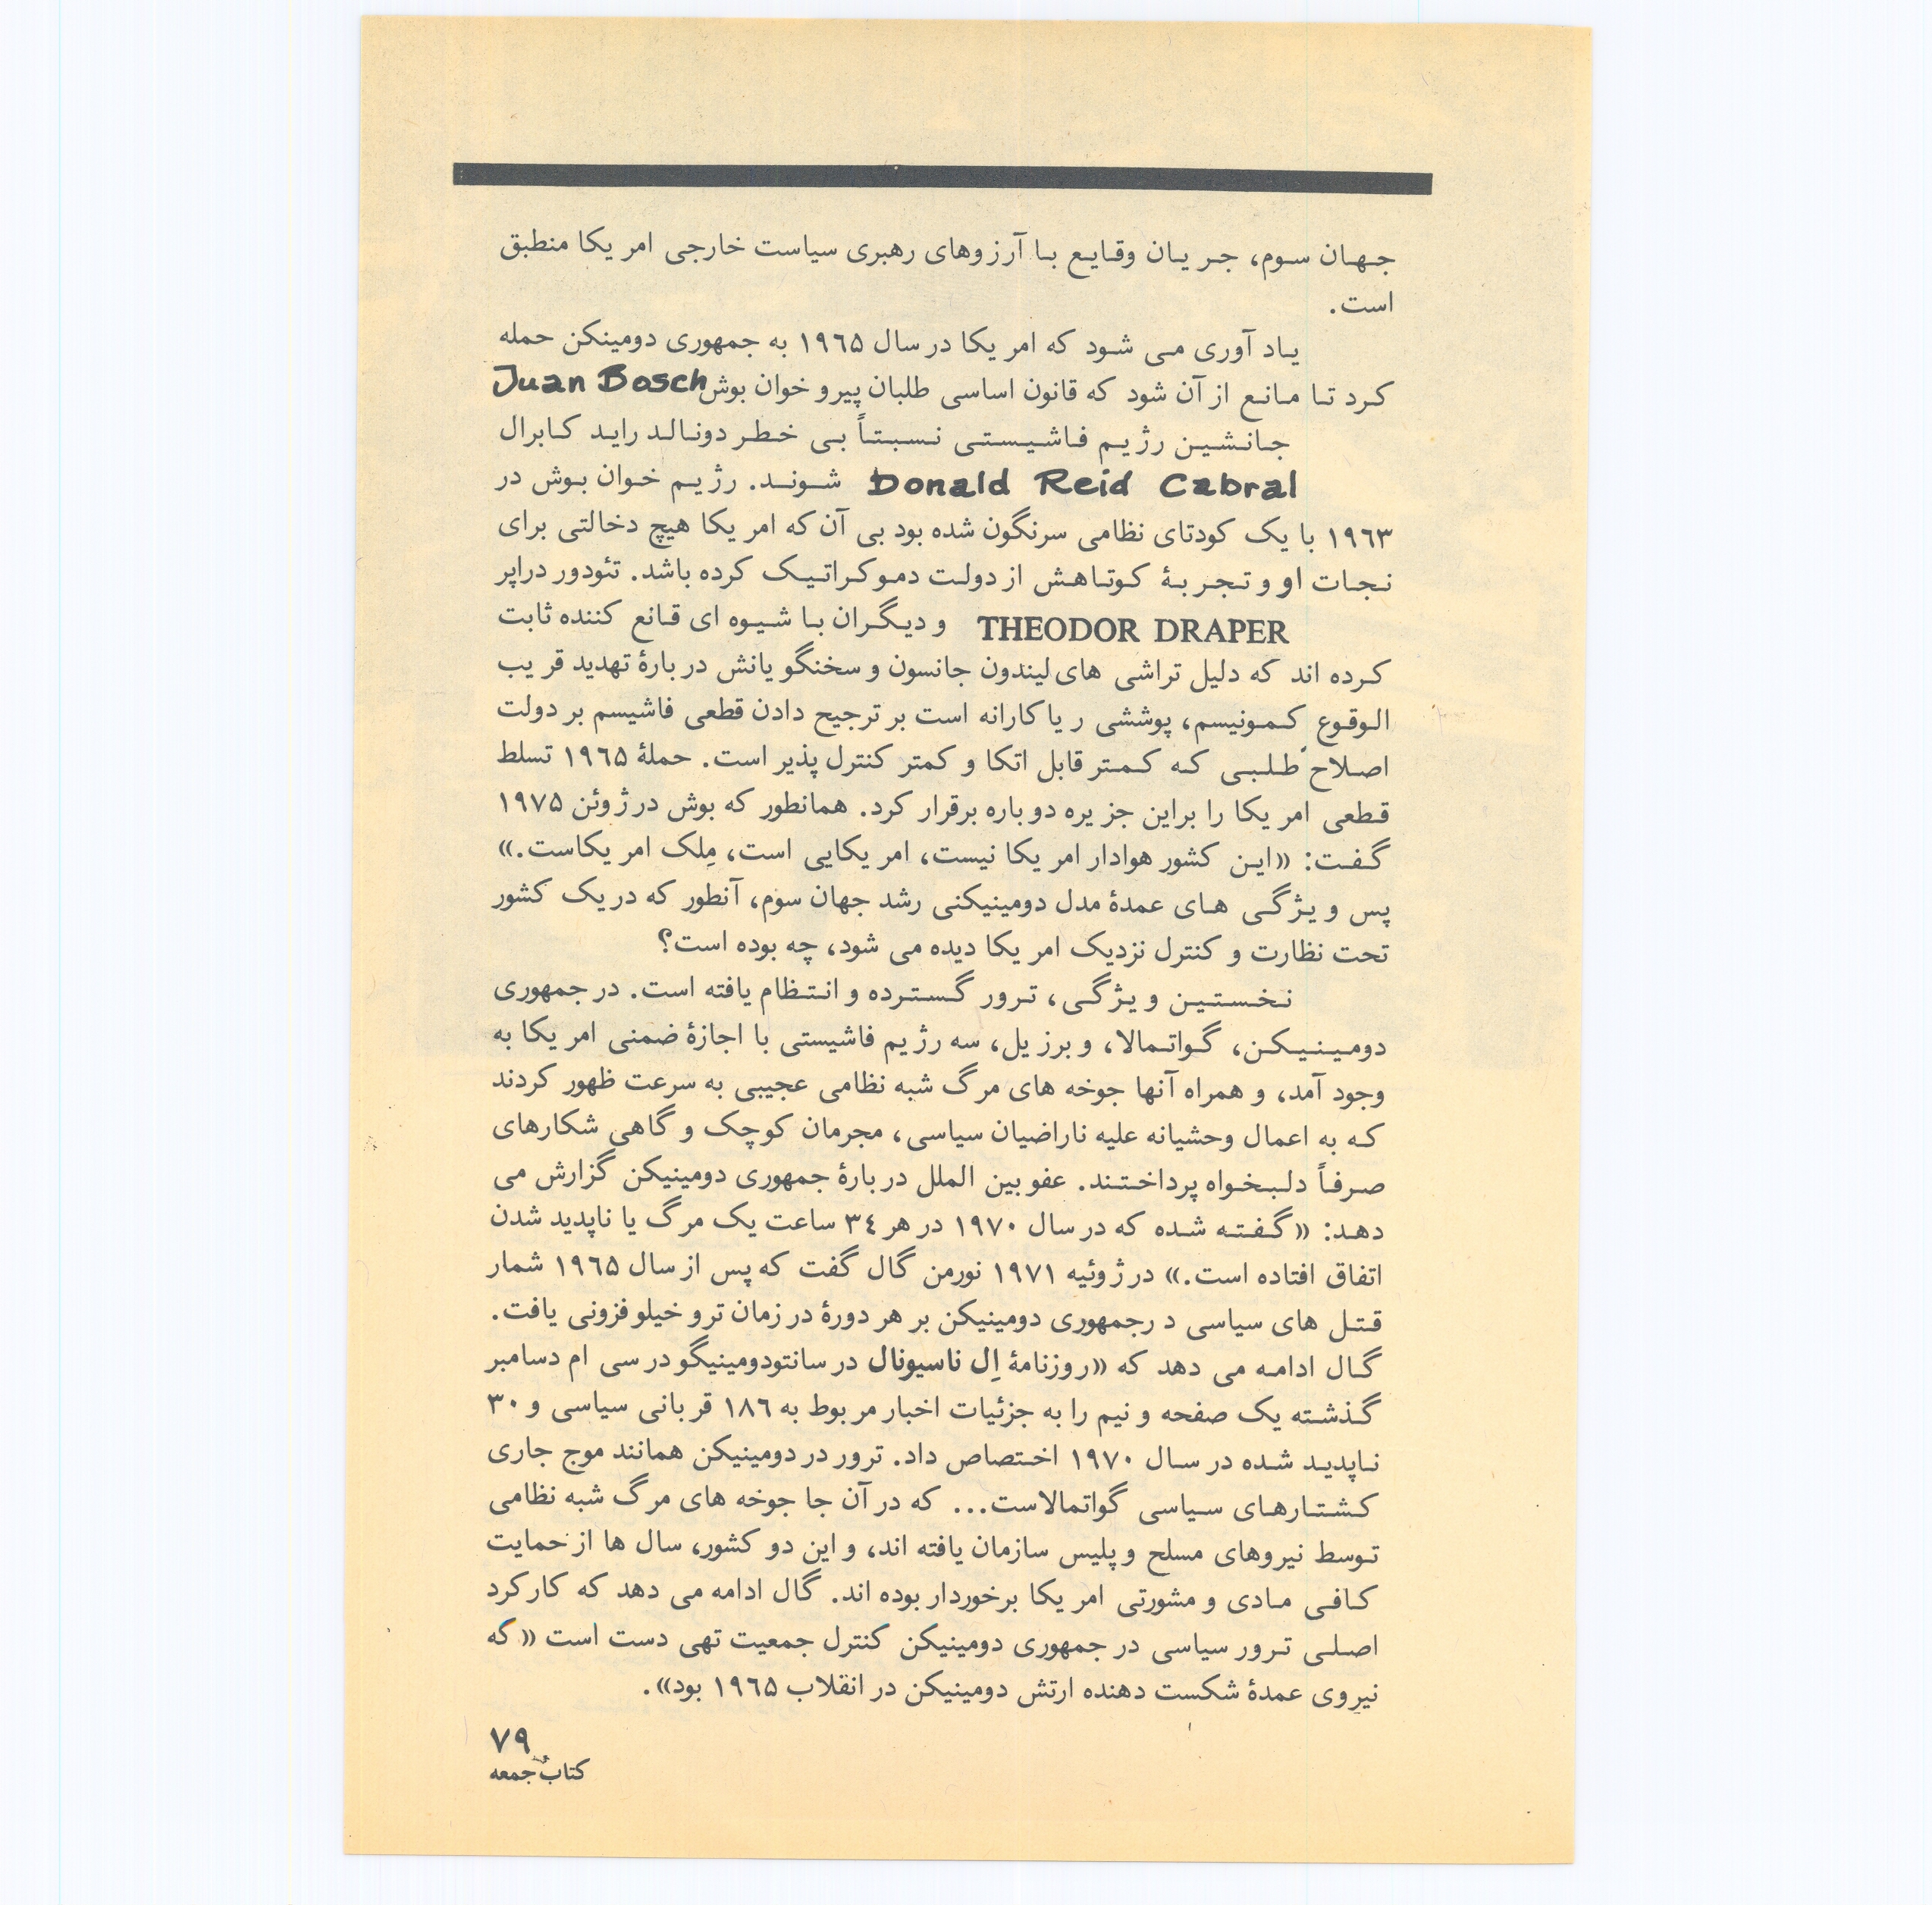 جهان سوم، جریان وقایع با آرزوهای رهبری سیاست خارجی امریکا منطبق
است.
یاد آوری می شود که امریکا در سال ۱۹۶۵ به جمهوری دومینکن حمله
کرد تا مانع از آن شود که قانون اساسی طلبان پیرو خوان بوش Juan Bosch
جانشین رژیم فاشیستی نسبتاً بی خطر دونالد راید کابرال
Donald Reid Cabral شوند. رژیم خوان بوش در
۱۹۶۳ با یک کودتای نظامی سرنگون شده بود بی آن که امریکا هیچ دخالتی برای
نجات او و تجربهٔ کوتاهش از دولت دموکراتیک کرده باشد. تئودور دراپر
THEODOR DRAPER و دیگران با شیوه ای قانع کننده ثابت
کرده اند که دلیل تراشی های لیندون جانسون و سخنگویانش دربارهٔ تهدید قریب
الوقوع کمونیسم، پوششی ریاکارانه است بر ترجیح دادن قطعی فاشیسم بر دولت
اصلاح طلبی که کمتر قابل اتکا و کمتر کنترل پذیر است. حملهٔ ۱۹۶۵ تسلط
قطعی امریکا را براین جزیره دوباره برقرار کرد. همانطور که بوش در ژوئن ۱۹۷۵
گفت: «این کشور هوادار امریکا نیست، امریکایی است، مِلک امریکاست.»
پس ویژگی های عمدهٔ مدل دومینیکنی رشد جهان سوم، آنطور که در یک کشور
تحت نظارت و کنترل نزدیک امریکا دیده می شود، چه بوده است؟
نخستین ویژگی، ترور گسترده و انتظام یافته است. در جمهوری
دومینیکن، گواتمالا، و برزیل، سه رژیم فاشیستی با اجازهٔ ضمنی امریکا به
وجود آمد، و همراه آنها جوخه های مرگ شبه نظامی عجیبی به سرعت ظهور کردند
که به اعمال وحشیانه علیه ناراضیان سیاسی، مجرمان کوچک و گاهی شکارهای
صرفاً دلبخواه پرداختند. عفو بین الملل دربارهٔ جمهوری دومینیکن گزارش می
دهد: «گفته شده که در سال ۱۹۷۰ در هر ۳٤ ساعت یک مرگ یا ناپدید شدن
اتفاق افتاده است.» در ژوئیه ۱۹۷۱ نورمن گال گفت که پس از سال ۱۹۶۵ شمار
قتل های سیاسی د رجمهوری دومینیکن بر هر دورهٔ در زمان تروخیلو فزونی یافت.
گال ادامه می دهد که «روزنامهٔ اِل ناسیونال در سانتودومینیگو در سی ام دسامبر
گذشته یک صفحه و نیم را به جزئیات اخبار مربوط به ۱۸۶ قربانی سیاسی و ۳۰
ناپدید شده در سال ۱۹۷۰ اختصاص داد. ترور در دومینیکن همانند موج جاری
کشتارهای سیاسی گواتمالاست... که در آن جا جوخه های مرگ شبه نظامی
توسط نیروهای مسلح و پلیس سازمان یافته اند، و این دو کشور، سال ها از حمایت
کافی مادی و مشورتی امریکا برخوردار بوده اند. گال ادامه می دهد که کارکرد
اصلی ترور سیاسی در جمهوری دومینیکن کنترل جمعیت تهی دست است «که
نیروی عمدهٔ شکست دهنده ارتش دومینیکن در انقلاب ۱۹۶۵ بود».
۷۹
کتاب جمعه